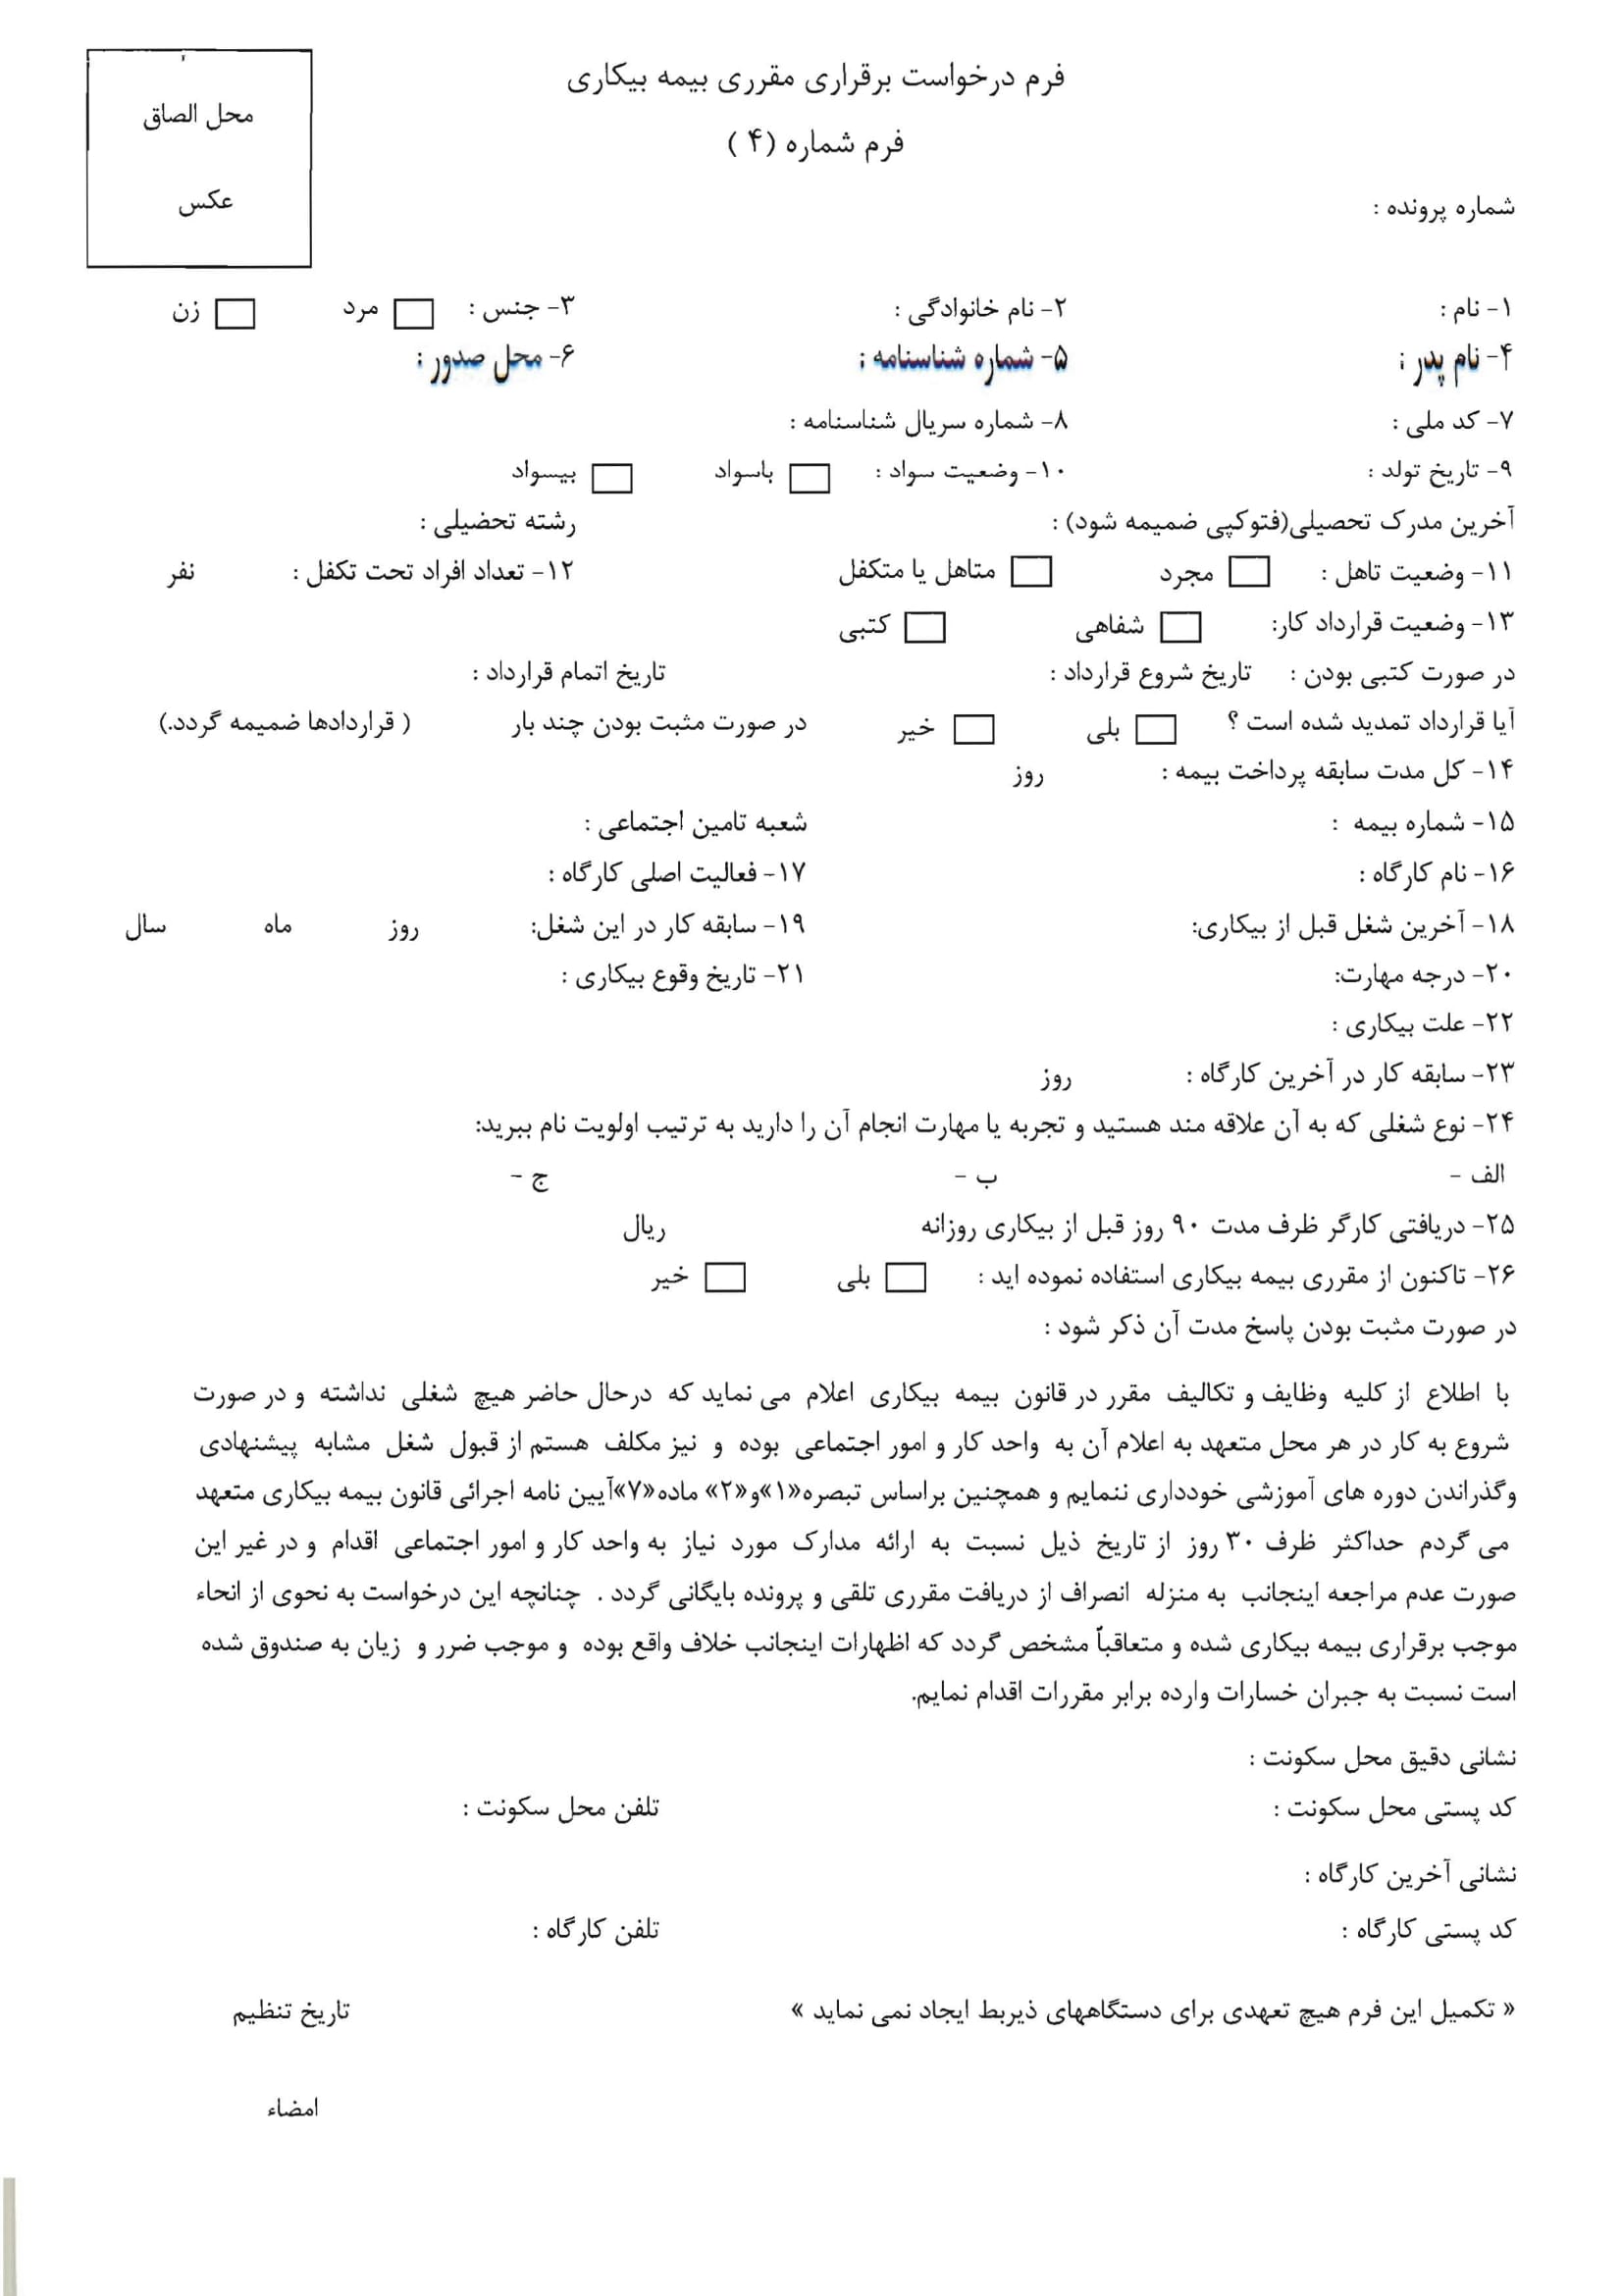 محل الصاق
عکس
فرم درخواست برقراری مقرری بیمه بیکاری
فرم شماره (۴ )
شماره پرونده :
۱- نام : ۲- نام خانوادگی : ۳- جنس : مرد زن
۴- نام پدر : ۵- شماره شناسنامه : ۶- محل صدور :
۷- کد ملی : ۸- شماره سریال شناسنامه :
۹- تاریخ تولد : ۱۰- وضعیت سواد : باسواد بیسواد
آخرین مدرک تحصیلی(فتوکپی ضمیمه شود) : رشته تحضیلی :
۱۱- وضعیت تاهل : مجرد متاهل یا متکفل ۱۲- تعداد افراد تحت تکفل : نفر
۱۳- وضعیت قرارداد کار: شفاهی کتبی
در صورت کتبی بودن : تاریخ شروع قرارداد : تاریخ اتمام قرارداد :
آیا قرارداد تمدید شده است ؟ بلی خیر در صورت مثبت بودن چند بار ( قراردادها ضمیمه گردد.)
۱۴- کل مدت سابقه پرداخت بیمه : روز
۱۵- شماره بیمه : شعبه تامین اجتماعی :
۱۶- نام کارگاه : ۱۷- فعالیت اصلی کارگاه :
۱۸- آخرین شغل قبل از بیکاری: ۱۹- سابقه کار در این شغل: روز ماه سال
۲۰- درجه مهارت: ۲۱- تاریخ وقوع بیکاری :
۲۲- علت بیکاری :
۲۳- سابقه کار در آخرین کارگاه : روز
۲۴- نوع شغلی که به آن علاقه مند هستید و تجربه یا مهارت انجام آن را دارید به ترتیب اولویت نام ببرید:
الف - ب - ج -
۲۵- دریافتی کارگر ظرف مدت ۹۰ روز قبل از بیکاری روزانه ریال
۲۶- تاکنون از مقرری بیمه بیکاری استفاده نموده اید : بلی خیر
در صورت مثبت بودن پاسخ مدت آن ذکر شود :
با اطلاع از کلیه وظایف و تکالیف مقرر در قانون بیمه بیکاری اعلام می نماید که درحال حاضر هیچ شغلی نداشته و در صورت
شروع به کار در هر محل متعهد به اعلام آن به واحد کار و امور اجتماعی بوده و نیز مکلف هستم از قبول شغل مشابه پیشنهادی
وگذراندن دوره های آموزشی خودداری ننمایم و همچنین براساس تبصره«۱»و«۲» ماده«۷»آیین نامه اجرائی قانون بیمه بیکاری متعهد
می گردم حداکثر ظرف ۳۰ روز از تاریخ ذیل نسبت به ارائه مدارک مورد نیاز به واحد کار و امور اجتماعی اقدام و در غیر این
صورت عدم مراجعه اینجانب به منزله انصراف از دریافت مقرری تلقی و پرونده بایگانی گردد . چنانچه این درخواست به نحوی از انحاء
موجب برقراری بیمه بیکاری شده و متعاقباً مشخص گردد که اظهارات اینجانب خلاف واقع بوده و موجب ضرر و زیان به صندوق شده
است نسبت به جبران خسارات وارده برابر مقررات اقدام نمایم.
نشانی دقیق محل سکونت :
کد پستی محل سکونت : تلفن محل سکونت :
نشانی آخرین کارگاه :
کد پستی کارگاه : تلفن کارگاه :
« تکمیل این فرم هیچ تعهدی برای دستگاههای ذیربط ایجاد نمی نماید » تاریخ تنظیم
امضاء